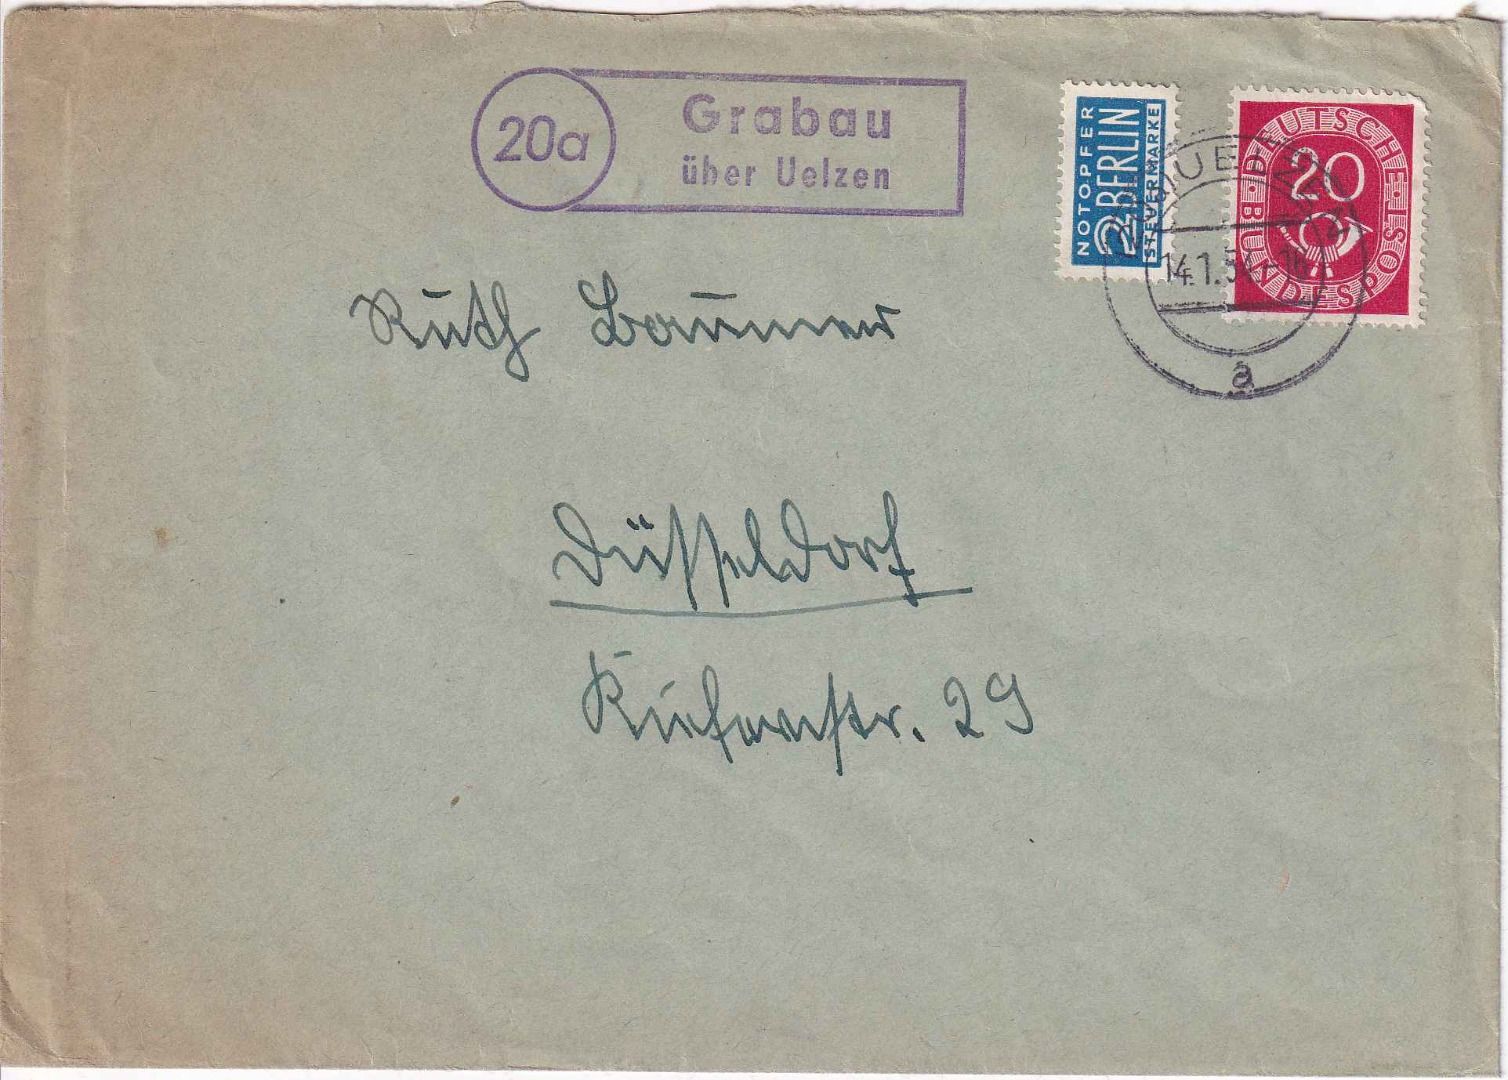 20a
Grabau
über Uelzen
NOTOPFER
2 BERLIN
STEUERMARKE
DEUTSCHE BUNDESPOST
20
14.1.5
a
Ruth Baumer
Düsseldorf
Kiefernstr. 29